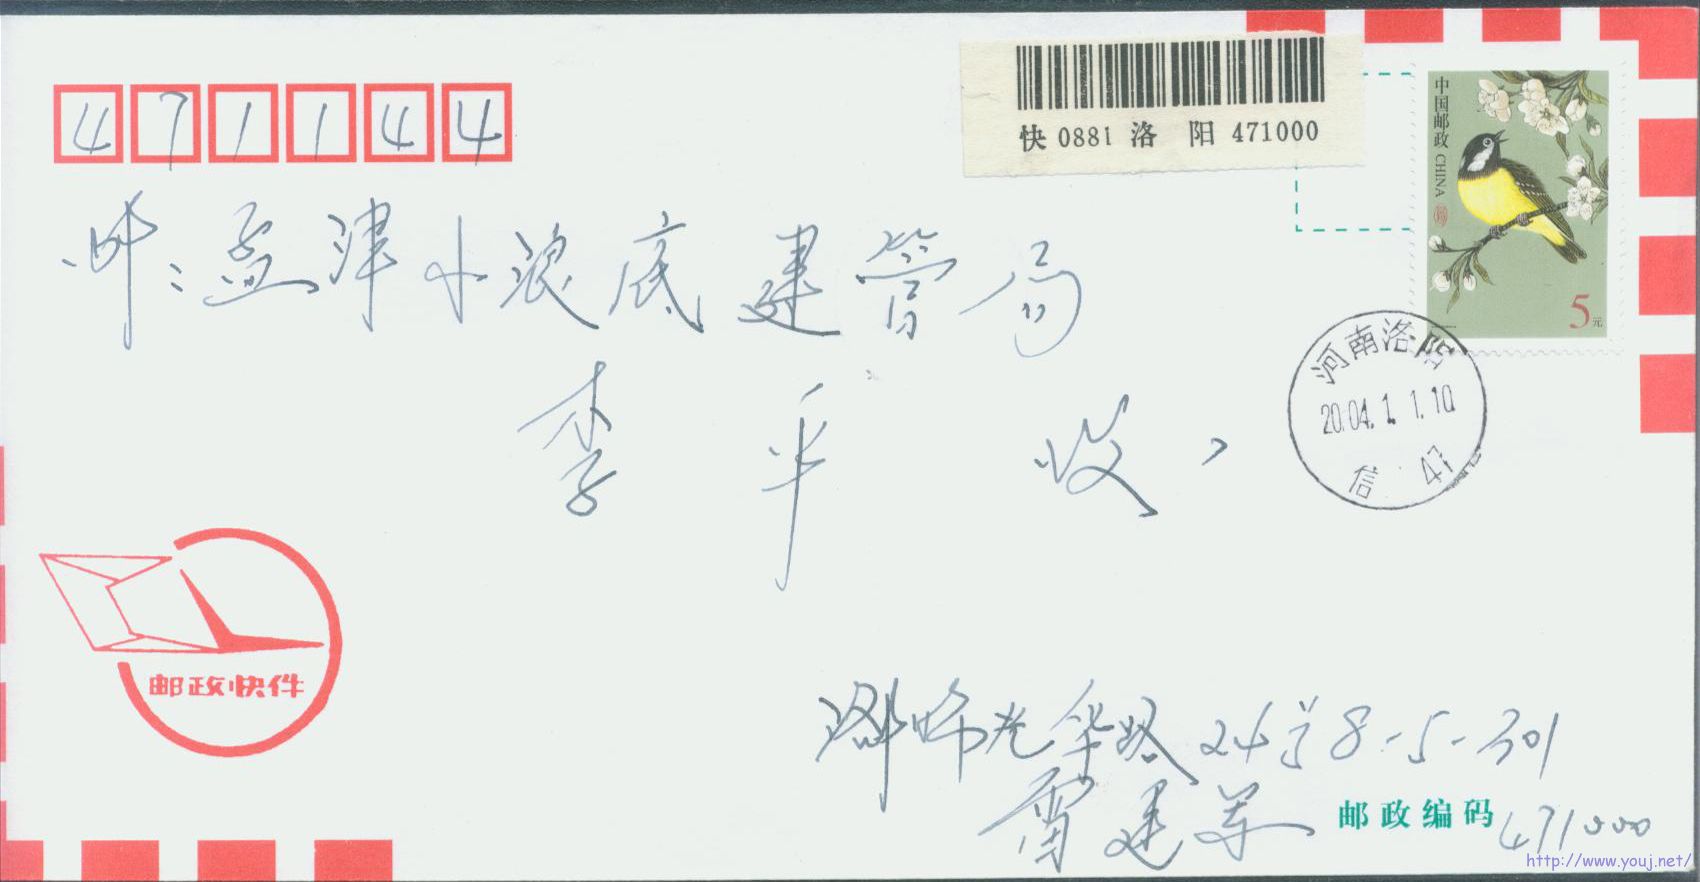 471144
快 0881 洛 阳 471000
中国邮政 CHINA
5元
孟津小浪底建管局
李 平 收
河南洛阳
2004.1.1.10
信 47
邮政快件
光华路24号8-5-301
雷建军
邮政编码 471000
http://www.youj.net/